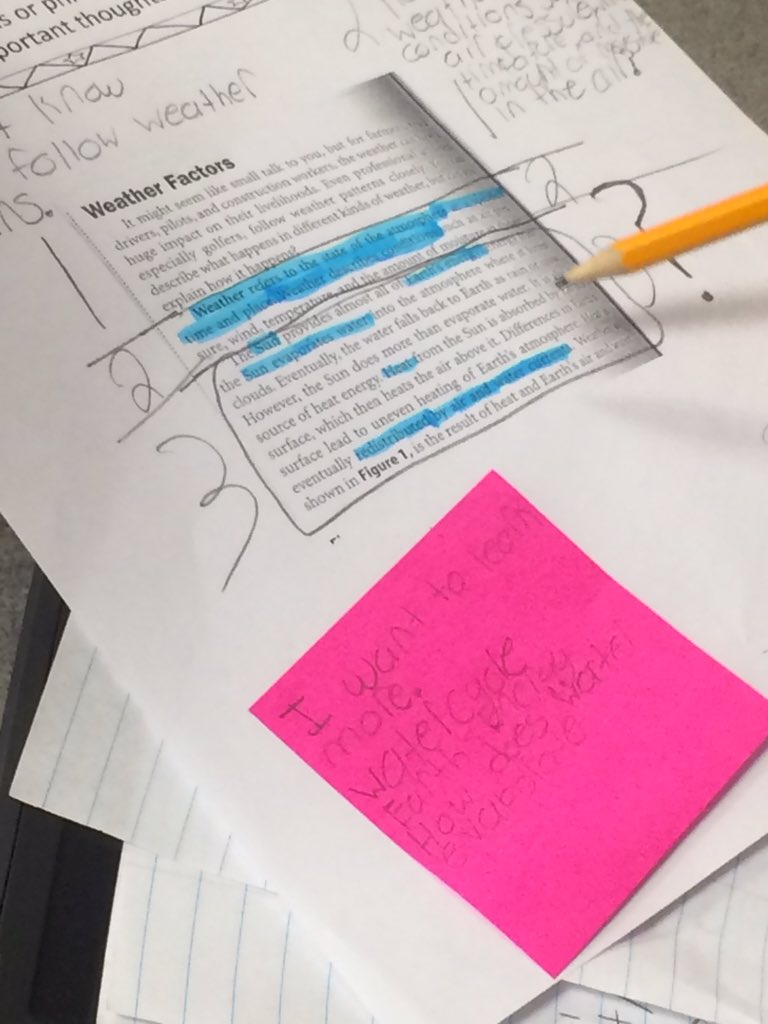 s or
portant though
know
follow weather
ns.
2
weat
conditions
air
in the air?
Weather Factors
It might seem like small talk to you, but for farm
drivers, pilots, and construction workers, the weather
huge impact on their livelihoods. Even professional
especially golfers, follow weather patterns closely
describe what happens in different kinds of weather, but
explain how it happens?
Weather refers to the state of the atmosph
time and pla
sure, wind, temperature, and the amount of moisture
The Sun provides almost all of Earth's energy
the Sun evaporates water into the atmosphere where it
clouds. Eventually, the water falls back to Earth as rain or
However, the Sun does more than evaporate water. It
source of heat energy. Heat from the Sun is absorbed by
surface, which then heats the air above it. Differences in
surface lead to uneven heating of Earth's atmosphere.
eventually redistributed by air and water
shown in Figure 1, is the result of heat and Earth's air and
1
2
2
?
3
I want to learn
more.
water cycle
Earth energy
How does water
evaporate